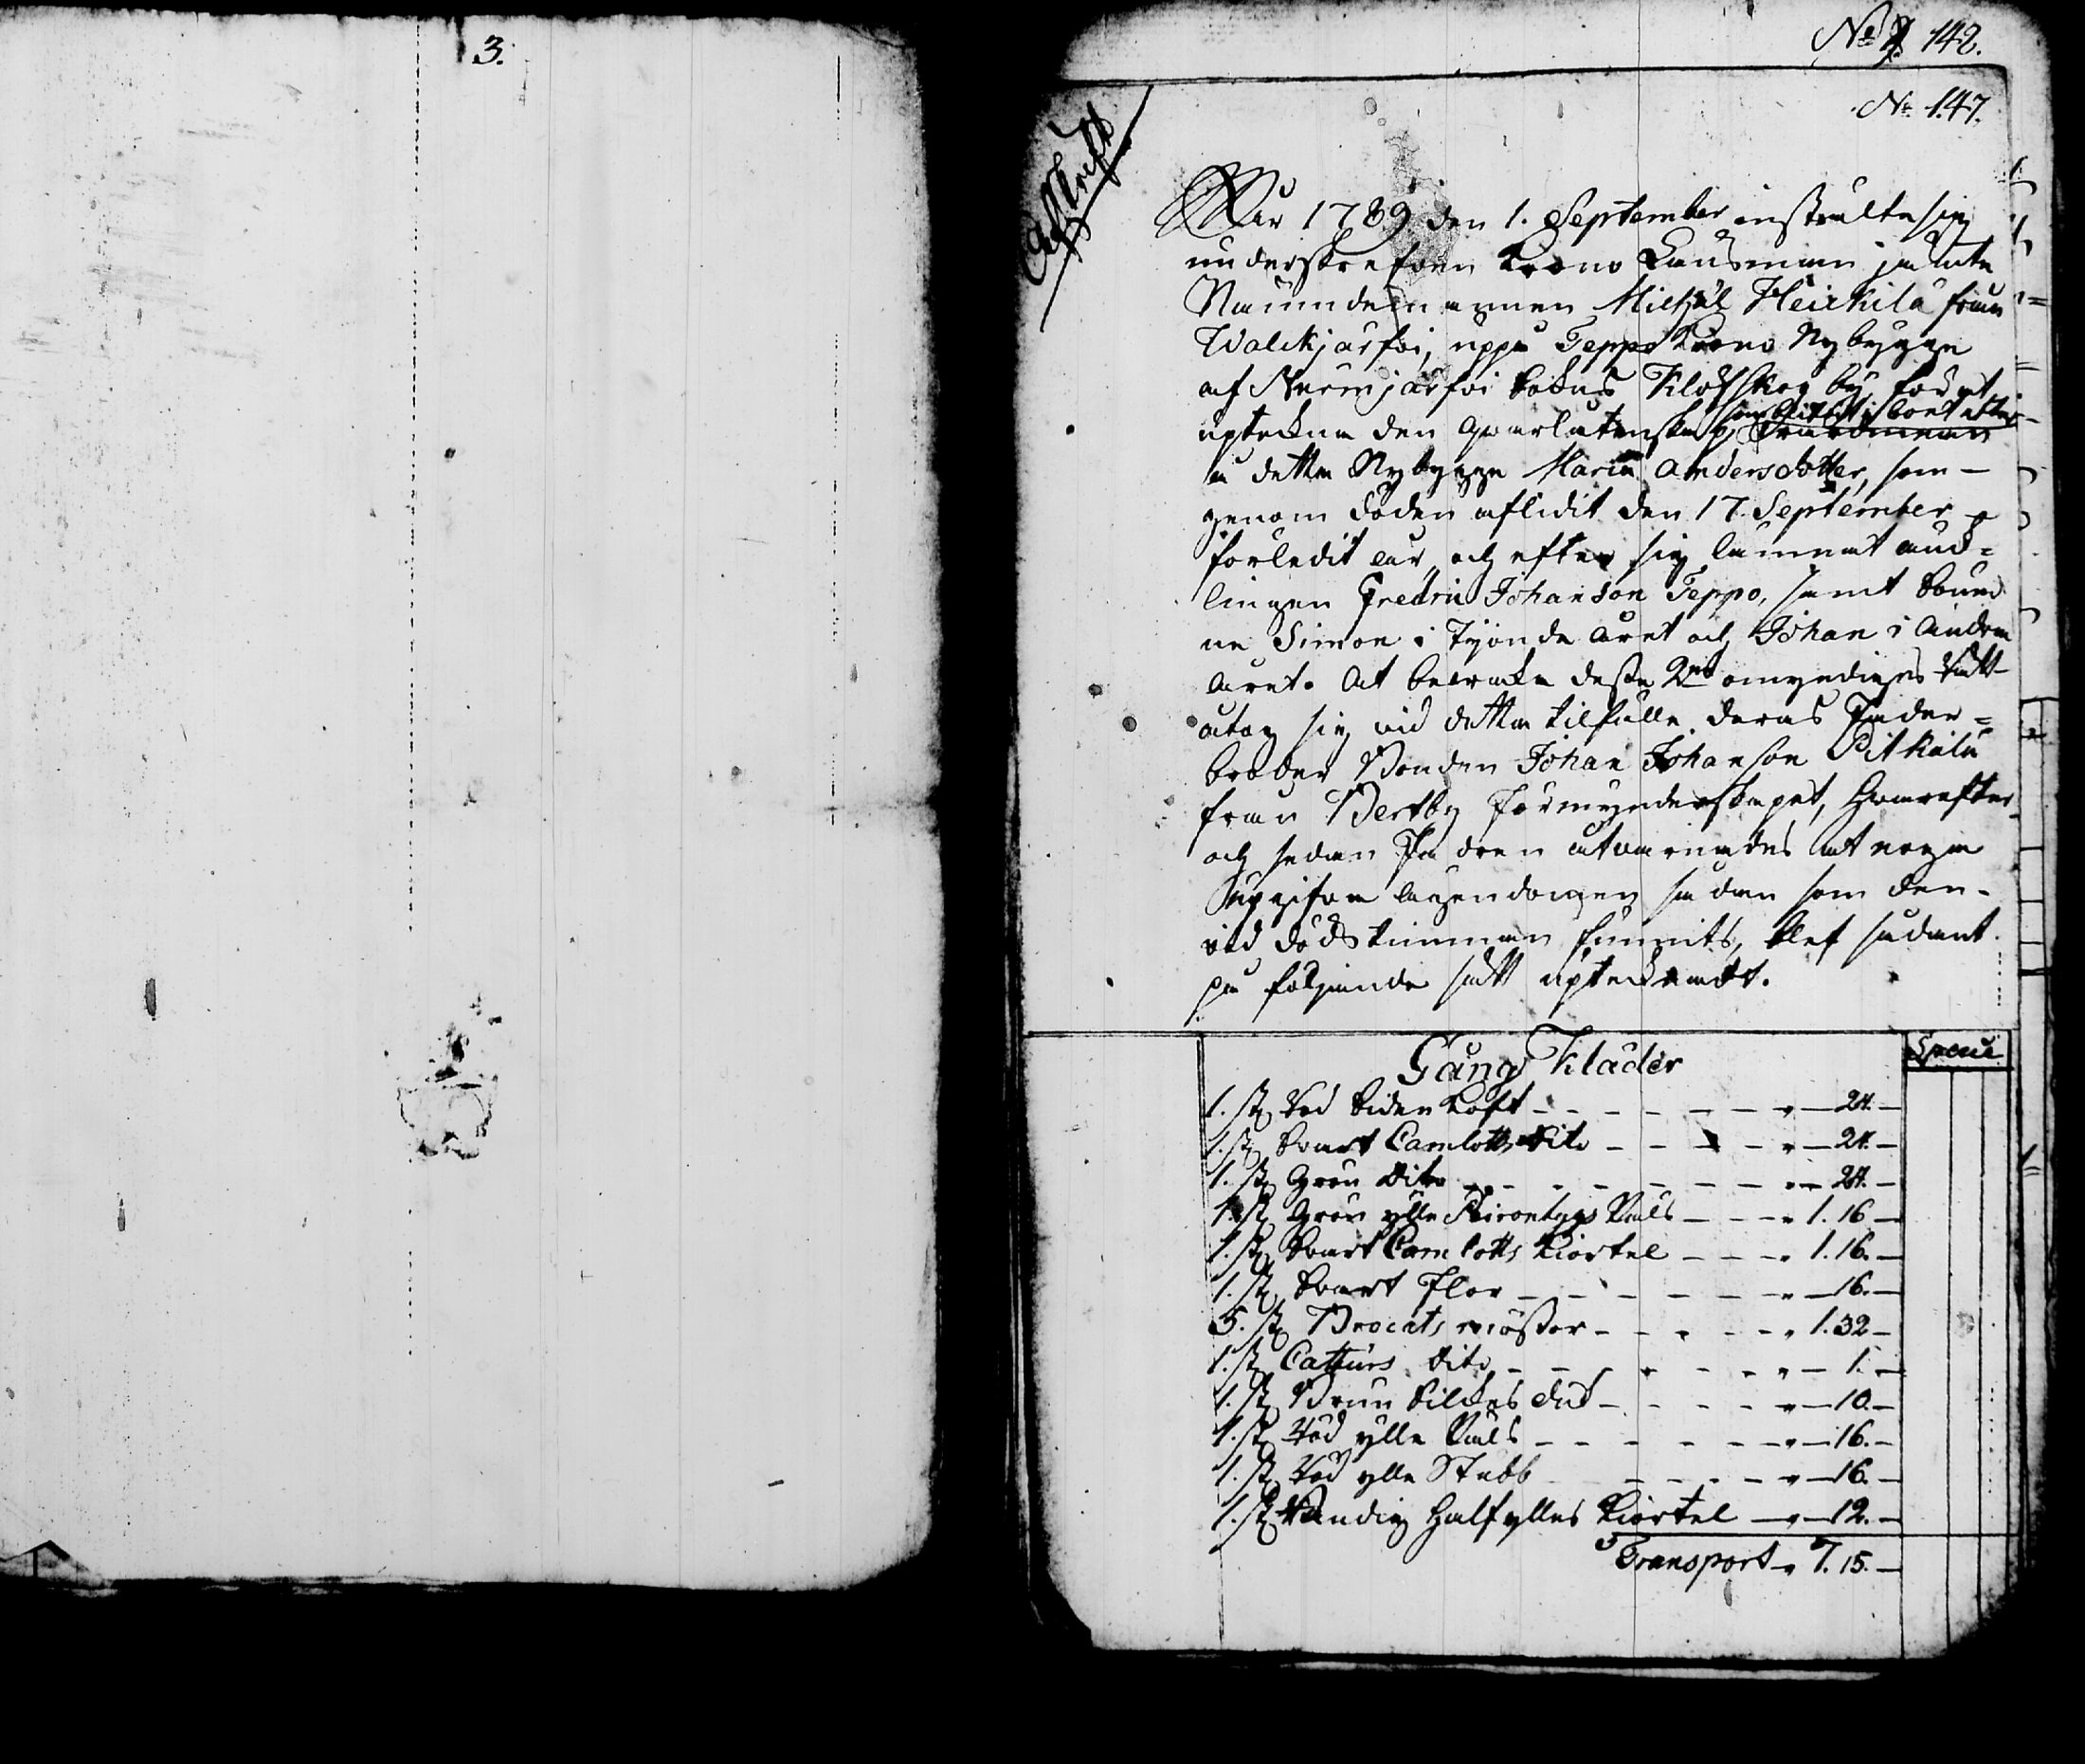 3.
No 142.
No 147.
Afskrift
Åhr 1789 den 1. September instälte sig
underskrefven Krono Länsman jämte
Nämndemannen Michäl Heickilä från
Walckjärfvi, uppå Teppo Krono Nybygge
af Nurmjärfvi Sokns Klöfskog by, för at
upteckna den qvarlåtenskap, som blifvit i boet efter
å detta Nybygge Maria Andersdotter, som
genom döden aflidit den 17. September
förledit år, och efter sig lämnat änck=
lingen Fredric Johanson Teppo, samt Söner
ne Simon i Tijonde året och Johan i Andra
året. At bevaka desse 2ne omyndiges rätt
åtog sig vid detta tilfälle deras Fader=
broder Bonden Johan Johanson Pitkälä
från Vertby förmynderskapet, hvarefter
och sedan Fadren åtvarnades at noga
upgifva ägendomen sådan som den
vid dödstimman funnits, blef sådant
på föl​jande sätt upteckna​dt.
Gång Kläder
Specie
1. st. Röd Siden Koft - - - 24. -
1. st. Svart Camlotts Dito - - - 24. -
1. st. Grön Dito - - - 24. -
1. st. Grön ylle Kjol​s - - - 1. 16 -
1. st. Svart Camlotts Kiortel - - - 1. 16. -
1. st. Svart Flor - - - 16. -
5. st. Brocats mössor - - - 1. 32 -
1. st. Cattuns Dito - - - 1. -
1. st. Brun Silkes duk - - - 10. -
1. st. Röd ylle - - - 16. -
1. st. Röd ylle Stubb - - - 16. -
1. st. Randig Halfylles Kiortel - 12. -
Transport 7. 15. -